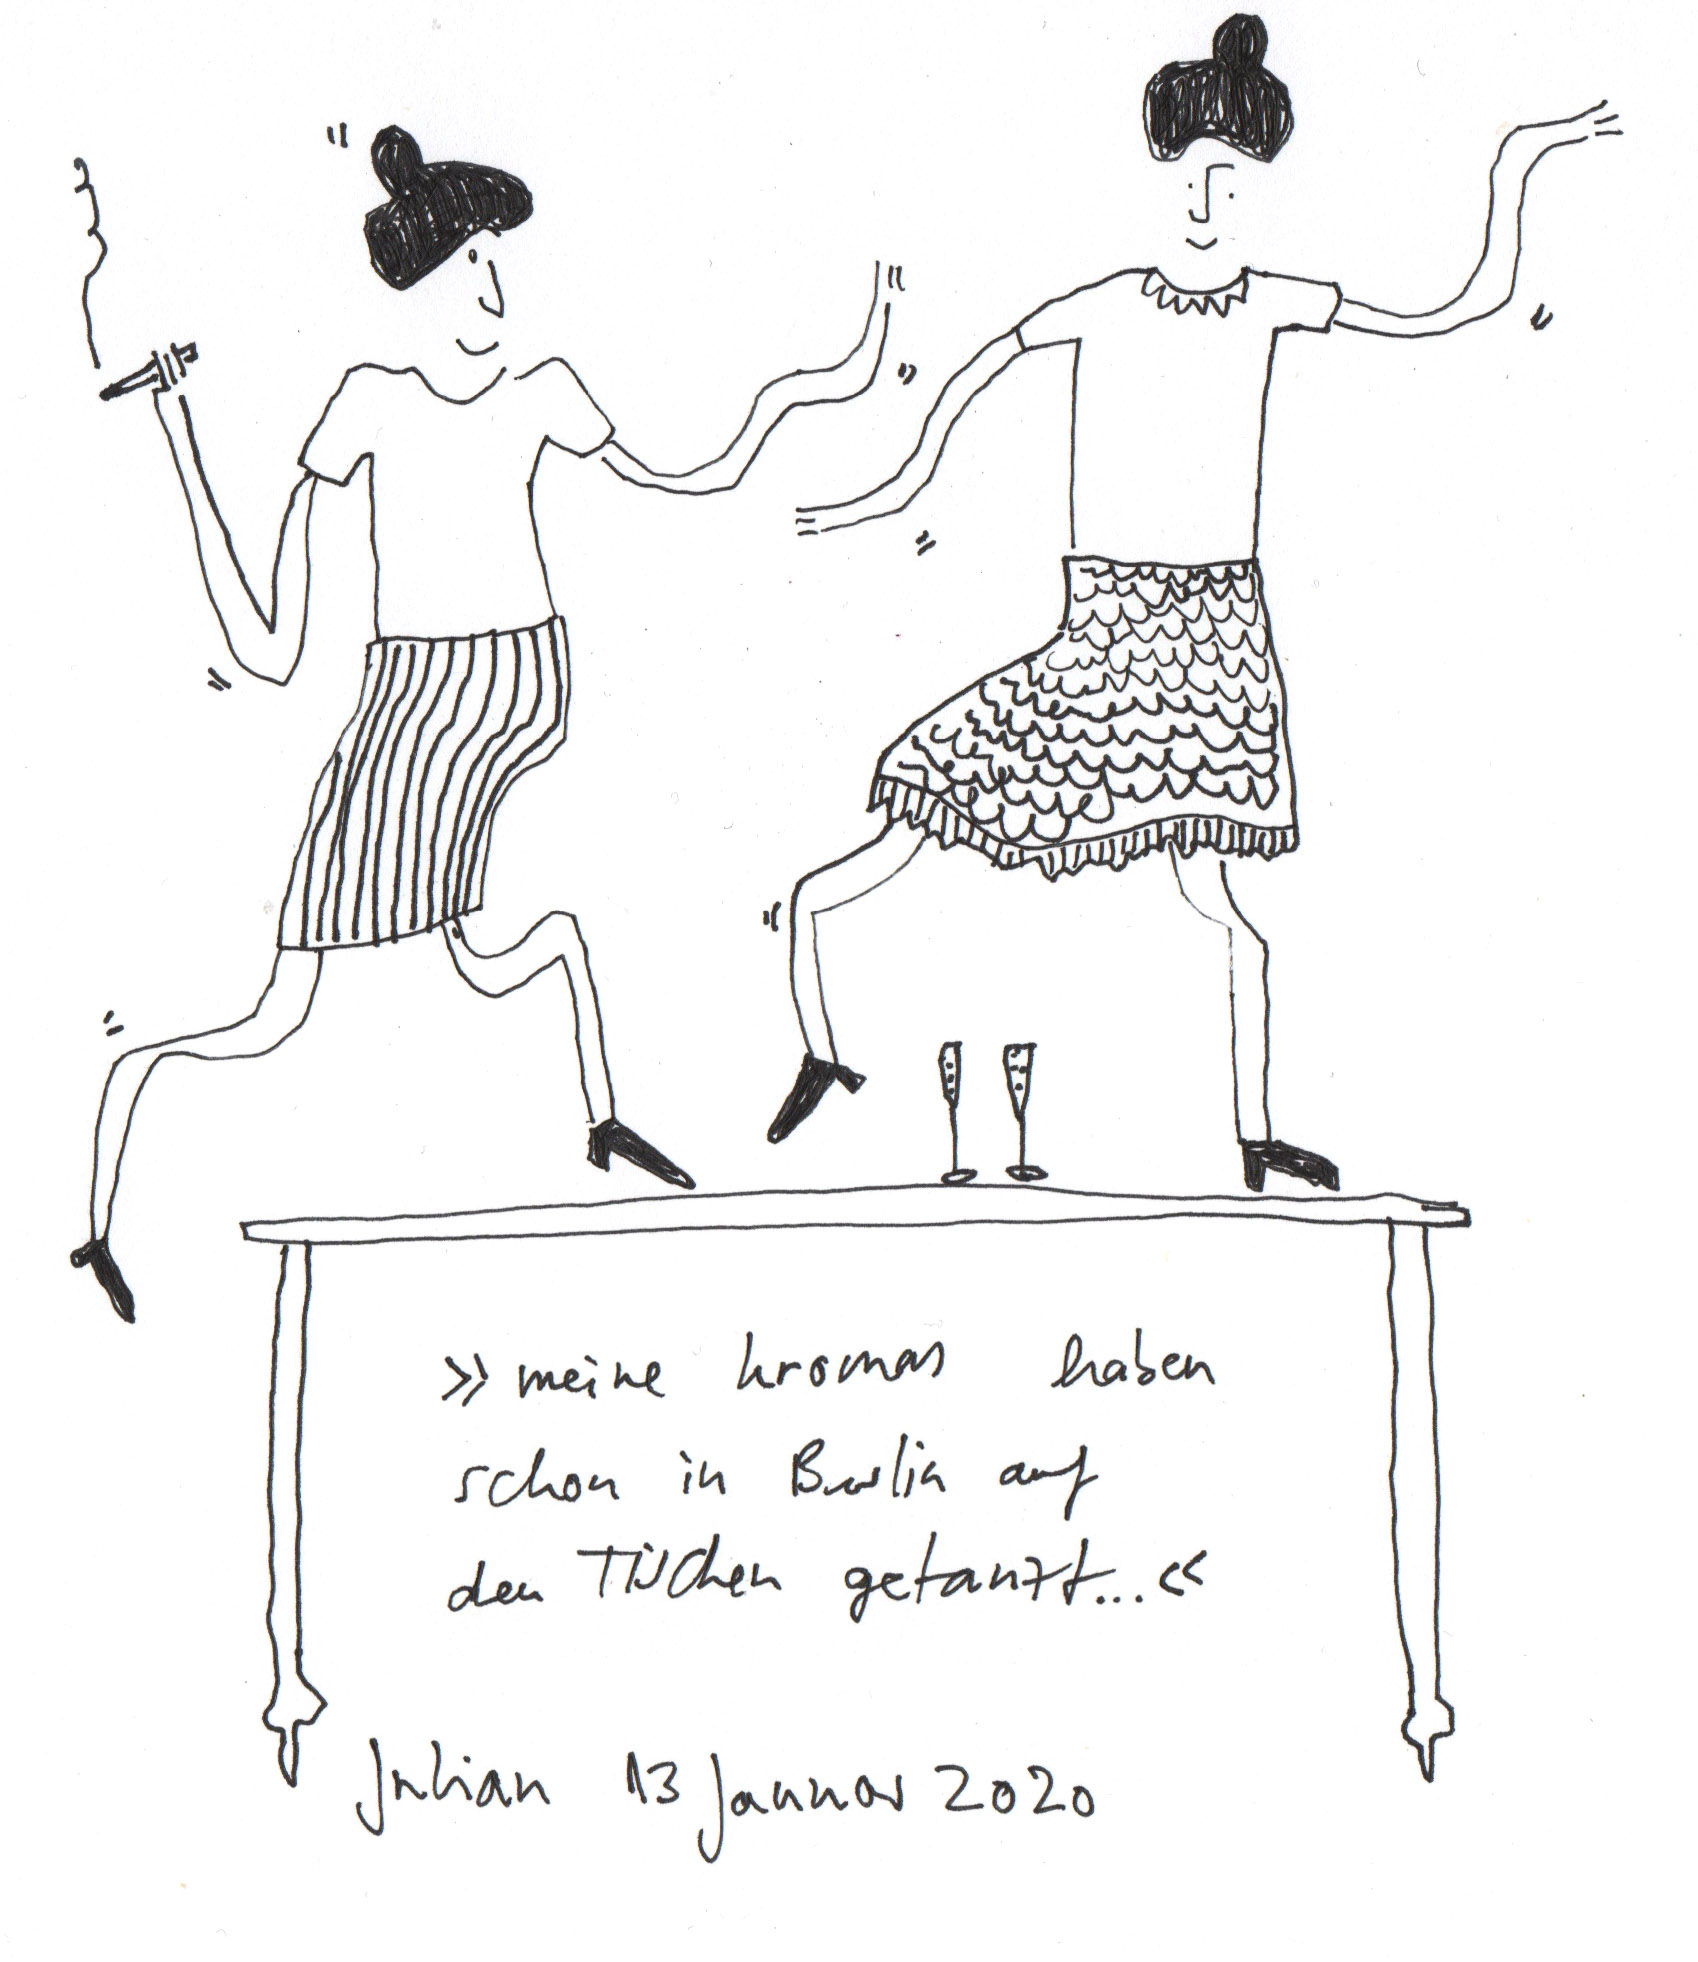 »meine Uromas haben
schon in Berlin auf
den Tischen getanzt...«
Julian 13 Januar 2020